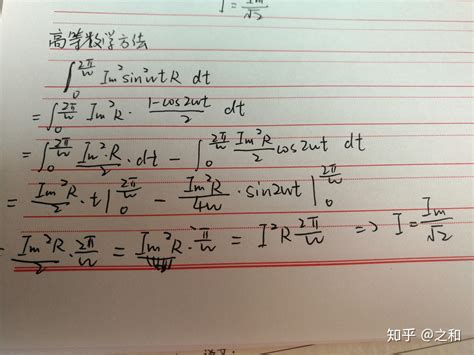 I = Im/√2
高等数学方法
∫₀^(2π/w) Im²sin²wtR dt
= ∫₀^(2π/w) Im²R · (1-cos2wt)/2 dt
= ∫₀^(2π/w) (Im²·R)/2 · dt - ∫₀^(2π/w) (Im²R)/2 cos2wt dt
= (Im²R)/2 · t |₀^(2π/w) - (Im²R)/(4w) · sin2wt |₀^(2π/w)
= (Im²R)/2 · 2π/w = Im²R · π/w = I²R 2π/w => I = Im/√2
知乎 @之和